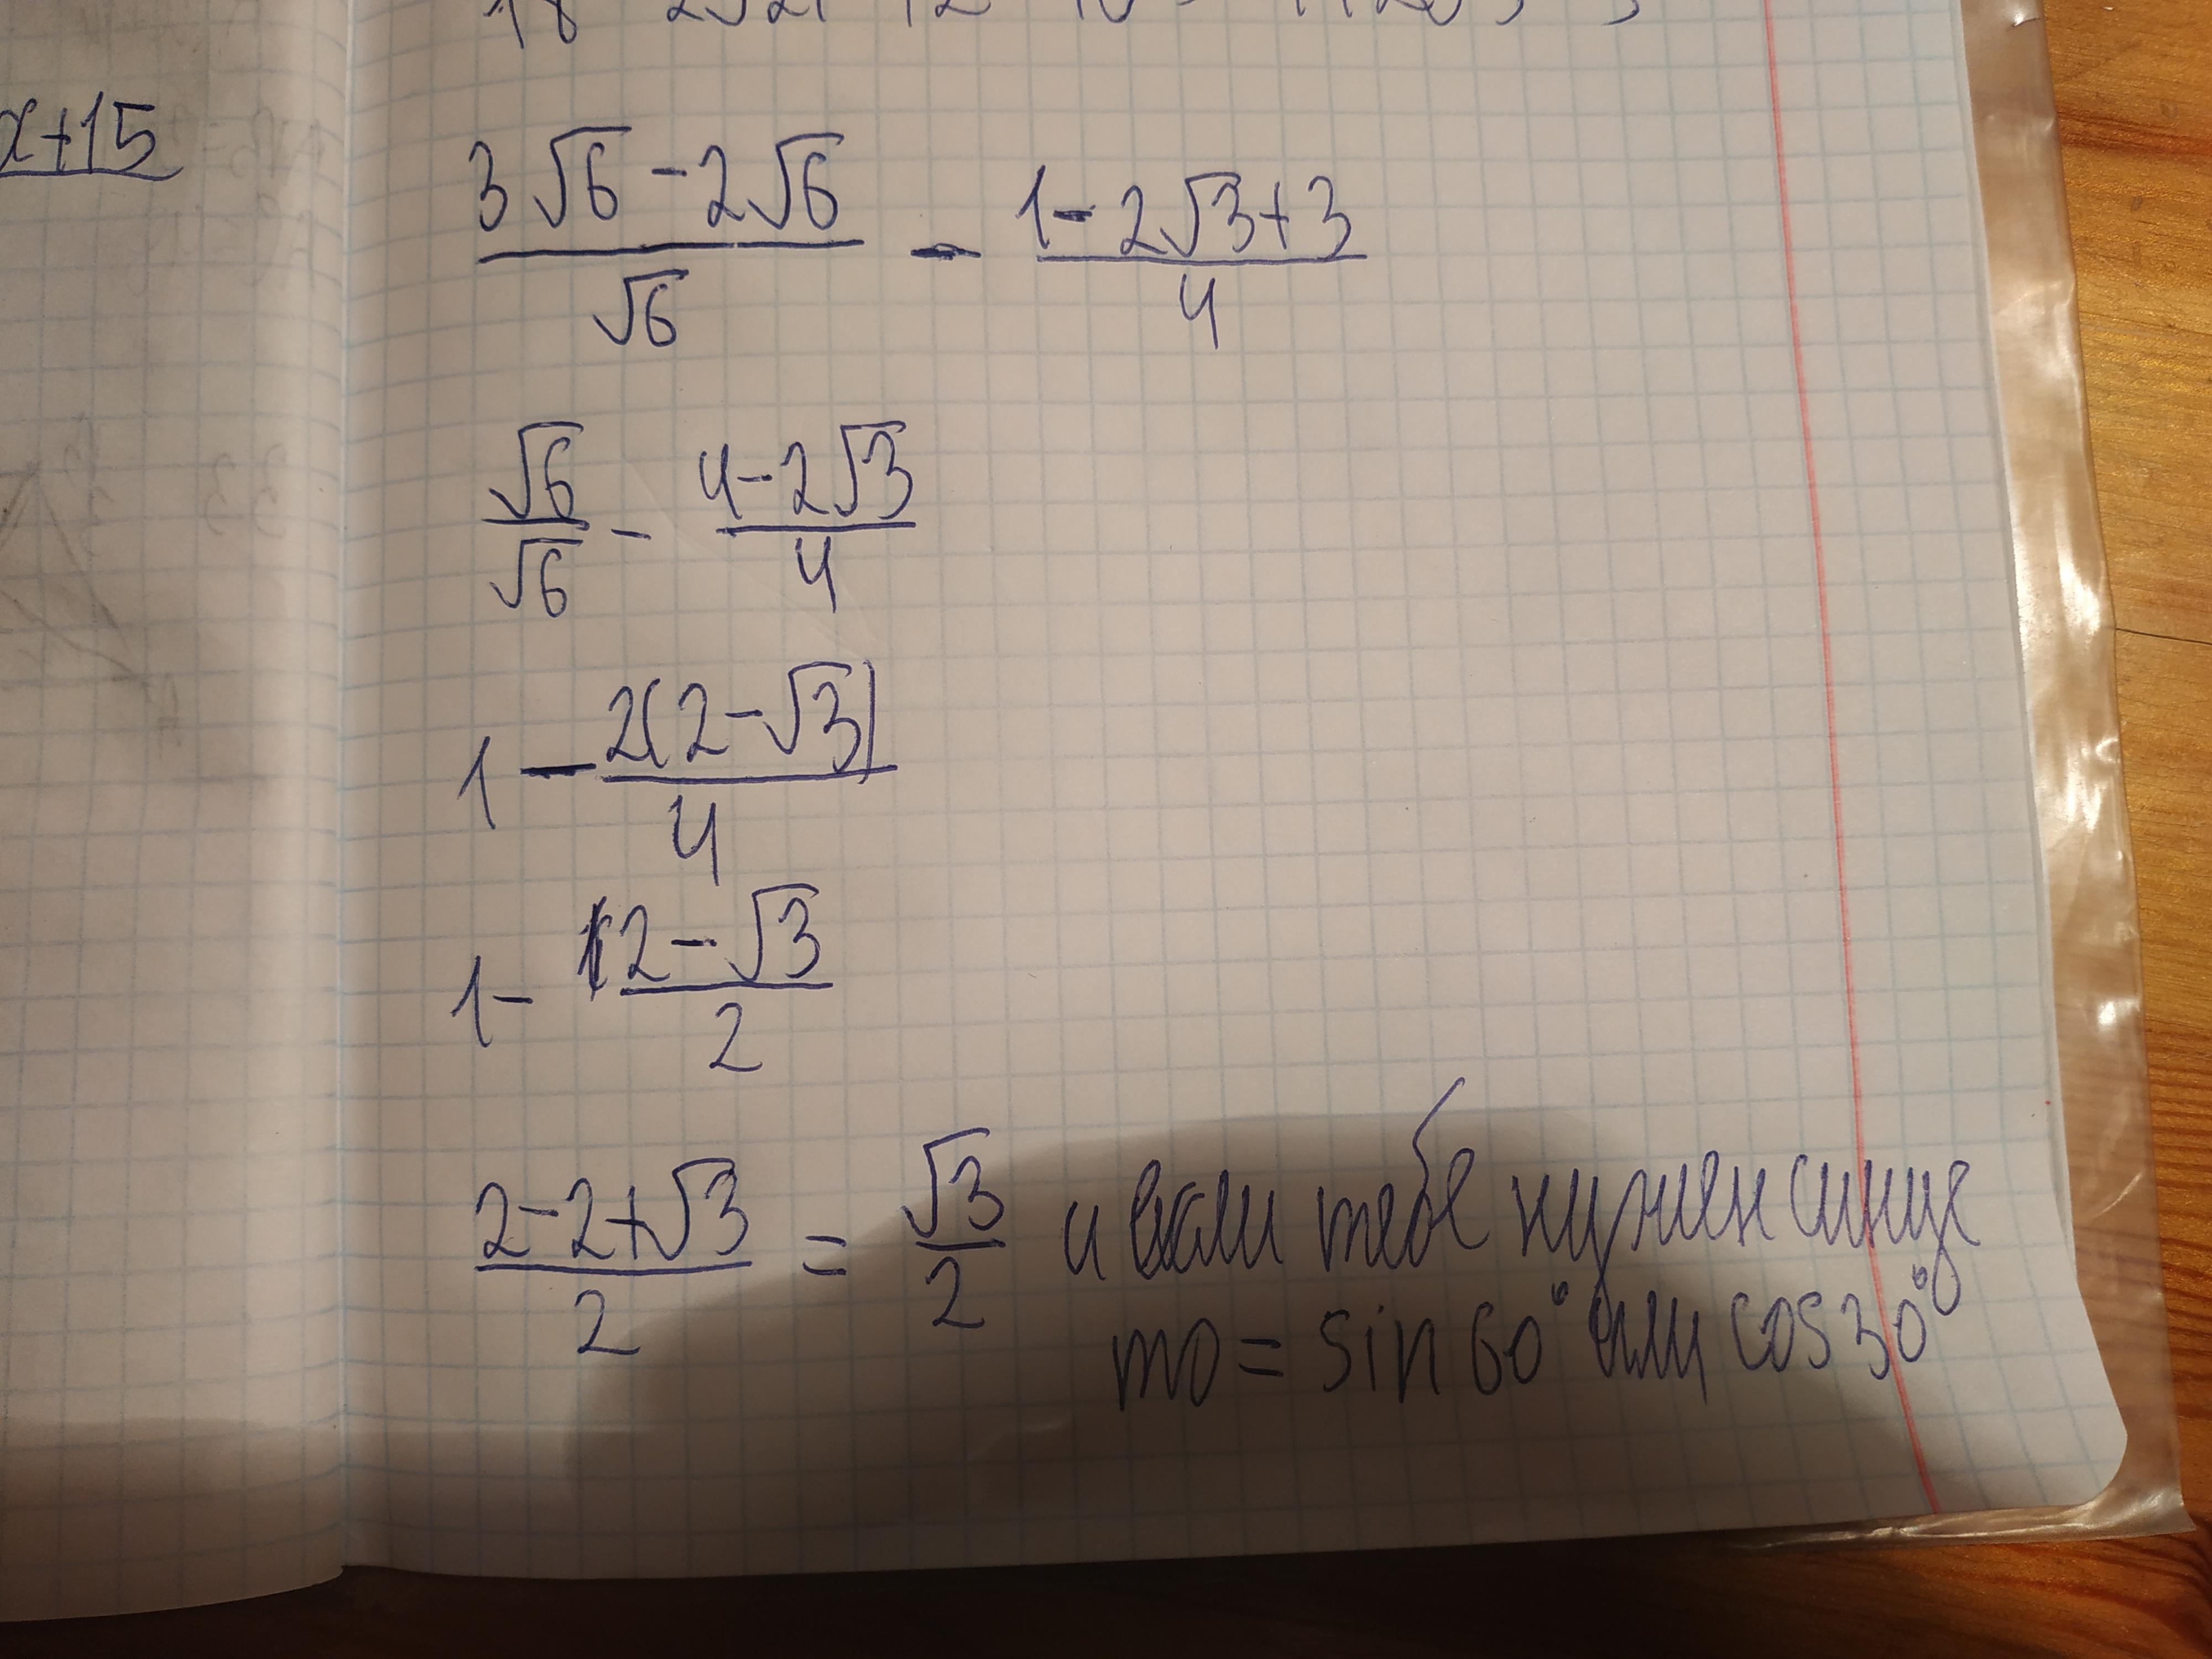 x+15
3√6-2√6/√6 - 1-2√3+3/4
√6/√6 - 4-2√3/4
1 - 2(2-√3)/4
1 - 2-√3/2
2-2+√3/2 = √3/2 и если тебе нужен синус
то = sin 60° или cos 30°